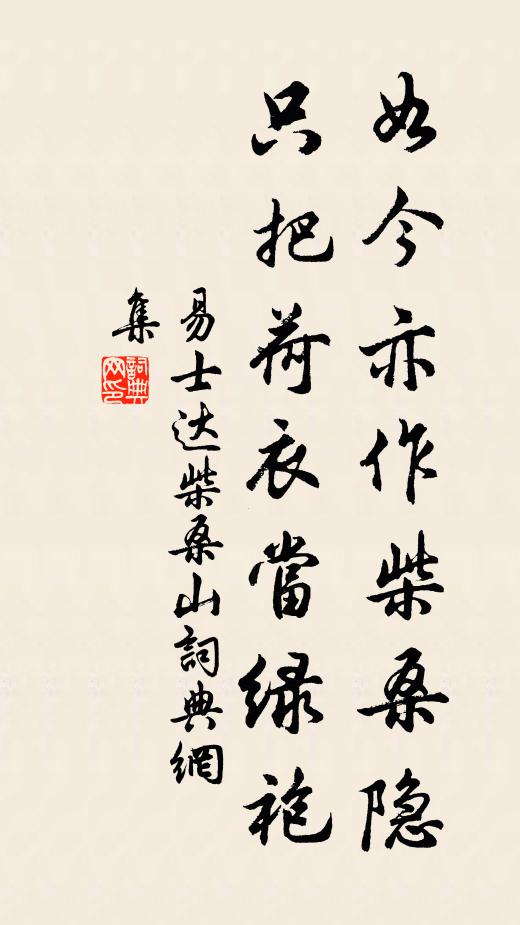 如今亦作柴桑隐
只把荷衣當绿袍
易士达柴桑山詞典網
集
詞典網印